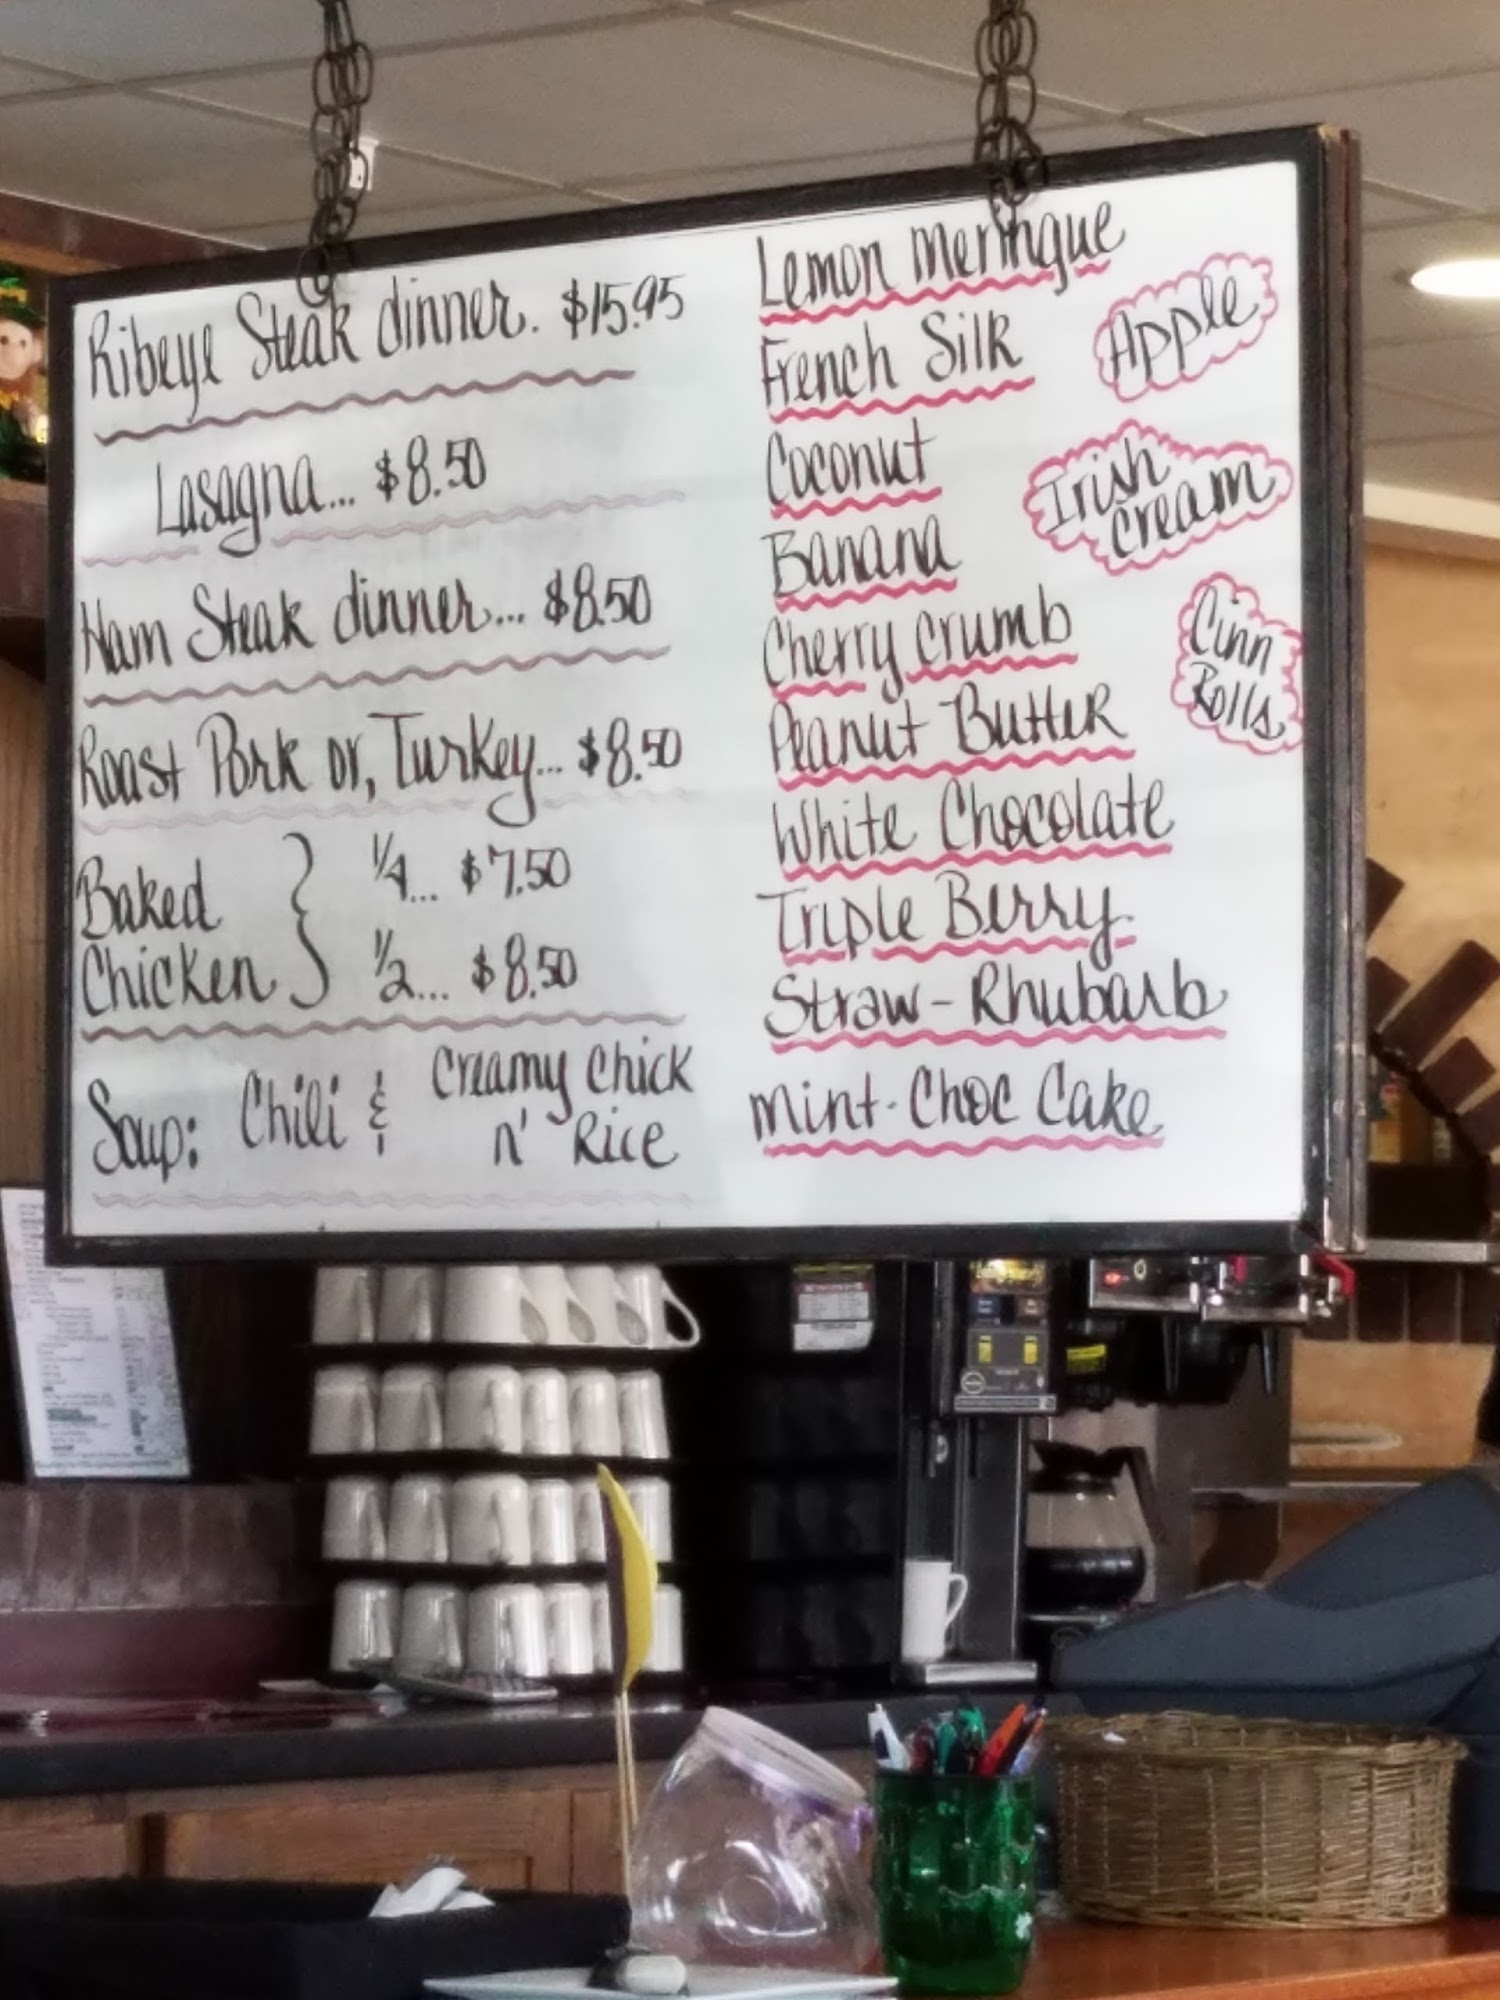 Ribeye Steak dinner. $15.95
Lasagna... $8.50
Ham Steak dinner... $8.50
Roast Pork or, Turkey... $8.50
Baked
Chicken
1/4... $7.50
1/2... $8.50
Soup: Chili & Creamy Chick
n' Rice
Lemon Meringue
French Silk
Coconut
Banana
Cherry Crumb
Peanut Butter
White Chocolate
Triple Berry
Straw-Rhubarb
Mint-Choc Cake
Apple
Irish
Cream
Cinn
Rolls